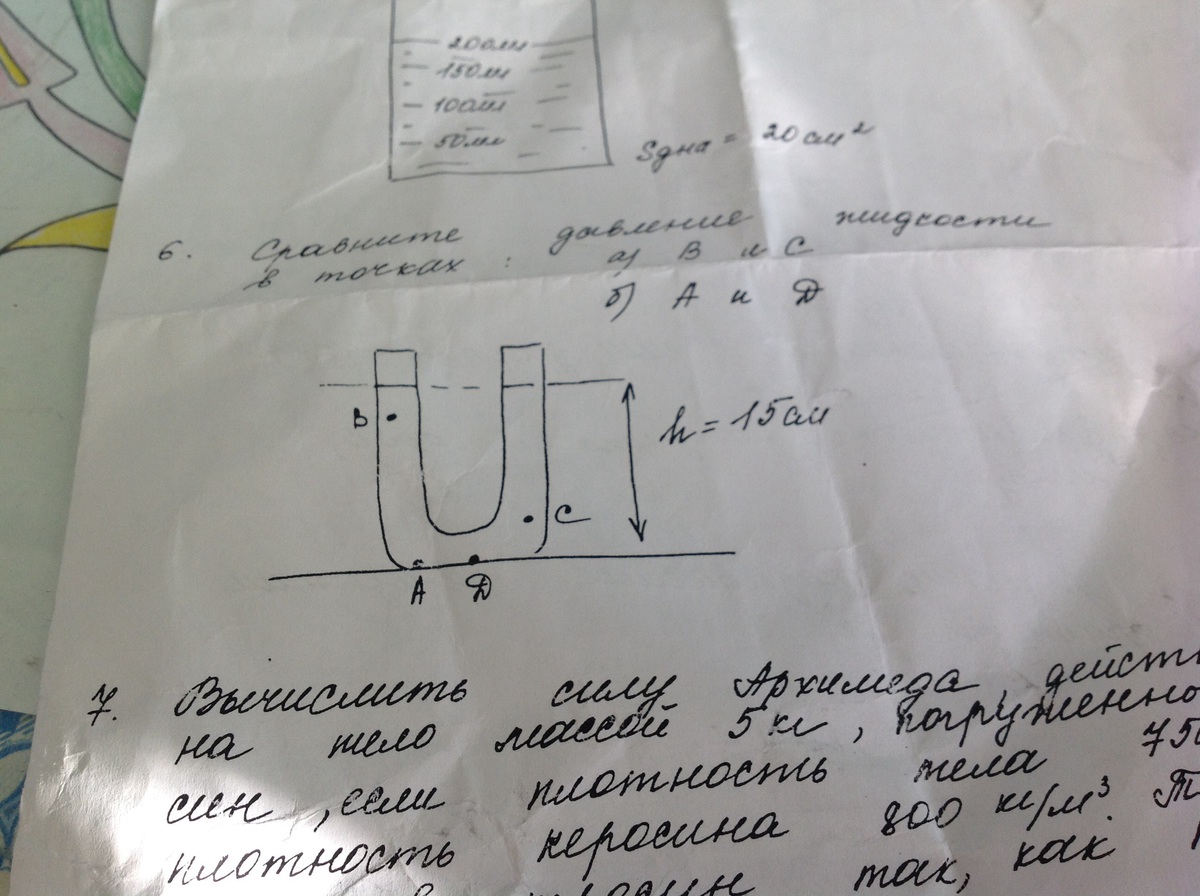 200мл
150мл
100мл
50мл
Sдна = 20 см²
6. Сравните давление жидкости
в точках: а) В и С
б) А и D
B
h = 15 см
C
A D
7. Вычислить силу Архимеда, действ
на тело массой 5 кг, погруженно
син, если плотность тела 750
плотность керосина 800 кг/м³. Т
так, как